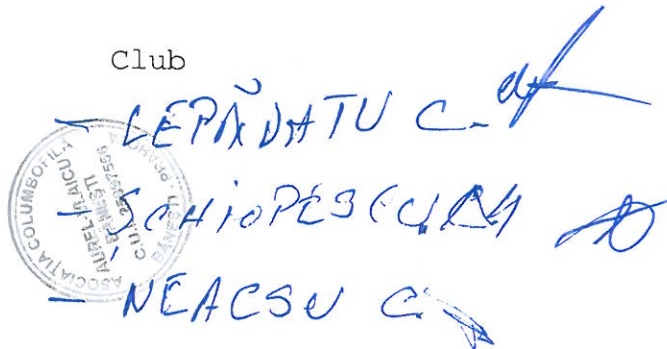 Club
- LEPĂDATU C.
- ȘCHIOPESCU
- NEACSU C.
ASOCIATIA COLUMBOFILA
AUREL VLAICU
BĂNEȘTI
C.U.I.
BĂNEȘTI - PRAHOVA